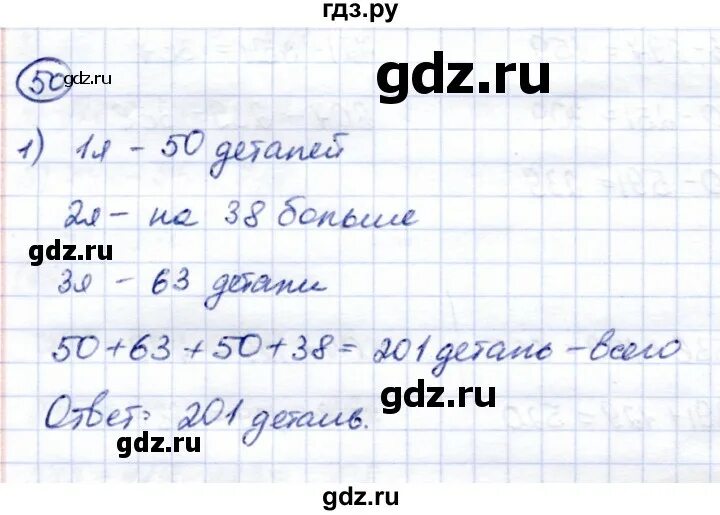 гдз.ру
50 gdz.ru
gdz.ru
1) 1я - 50 деталей
2я - на 38 больше
gdz.ru
3я - 63 детали
50+63+50+38= 201 деталь - всего
gdz.ru
Ответ: 201 деталь.
gdz.ru
gdz.ru